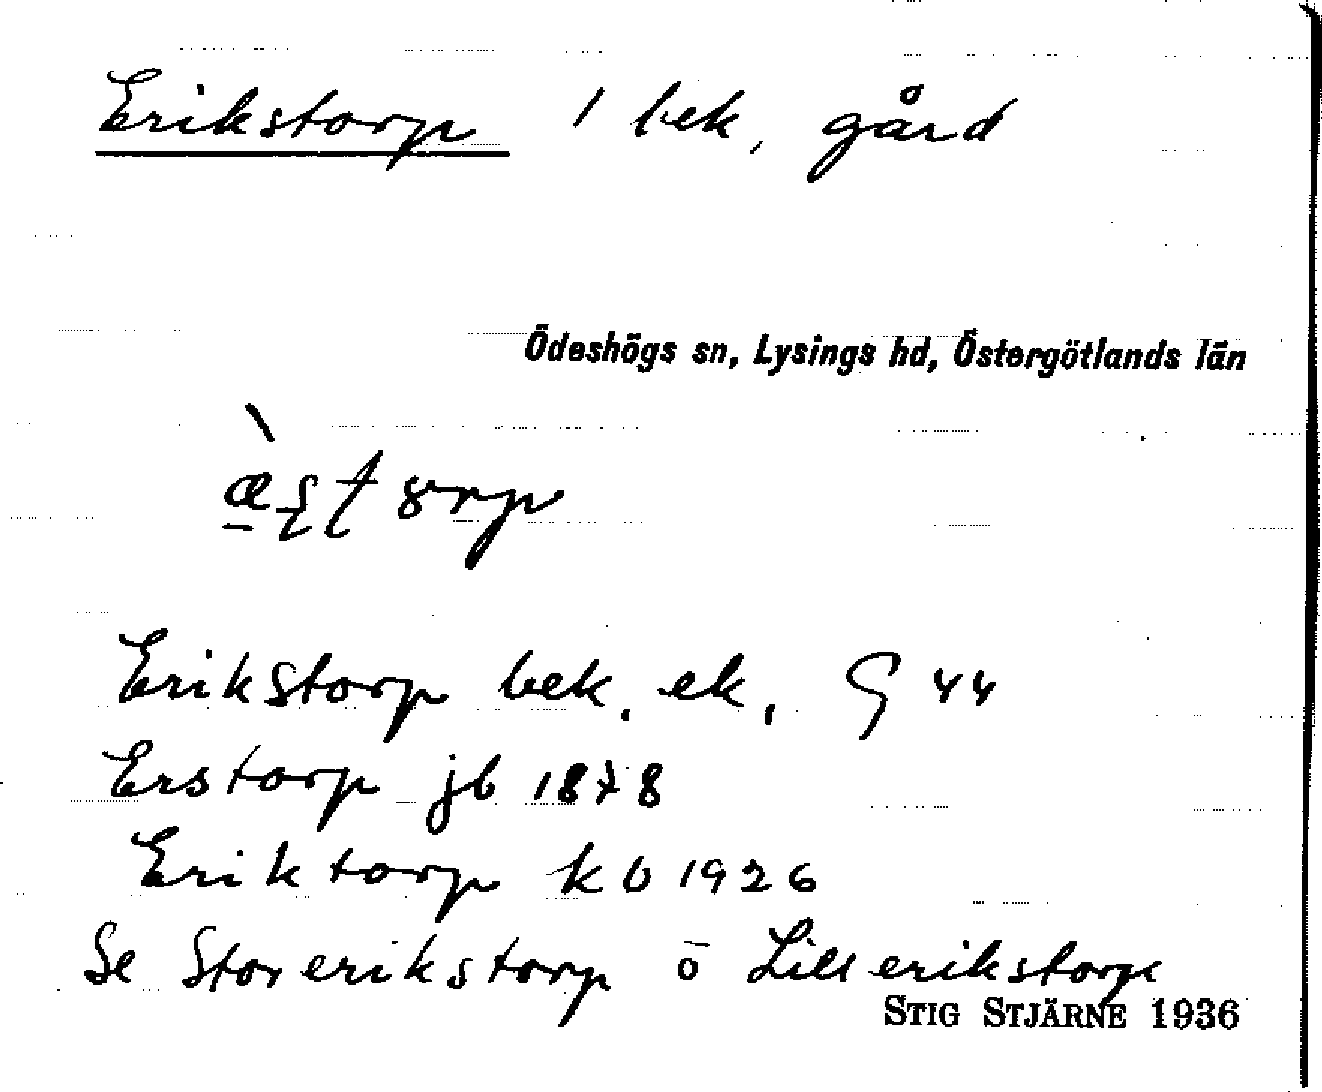 Erikstorp 1 bek, gård
Ödeshögs sn, Lysings hd, Östergötlands län
Erikstorp bek. ek. G 44
Erstorp jb 1878
Eriktorp kb 1926
Se Storerikstorp o Lillerikstorp
STIG STJÄRNE 1936